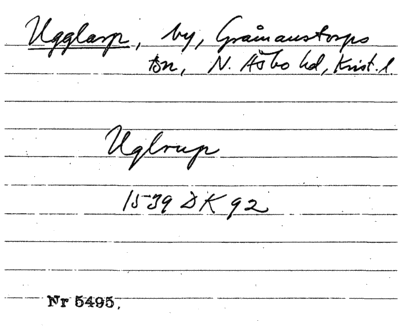 Ugglarp, by, Gråmanstorps
sn, N. Åsbo hd, Krist. l.
Uglrup
1539 DK 92
Nr 5495.